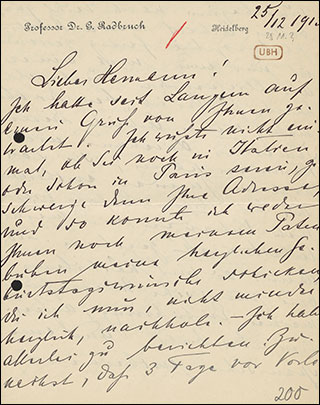 Professor Dr. G. Radbruch Heidelberg
25/12 191
UBH
Lieber Hermann!
Ich hatte seit Langem auf
einen Gruß von Ihnen ge-
wartet. Ich wußte nicht ein-
mal, ob Sie noch in Italien
oder schon in Paris seien, ge-
schweige denn Ihre Adresse,
und so konnte ich weder
Ihnen noch meinem Paten-
buben meine herzlichen Ge-
burtstagswünsche schicken,
die ich nun, nicht minder
herzlich, nachhole. – Ich habe
allerlei zu berichten. Zu-
nächst, daß 3 Tage vor
200